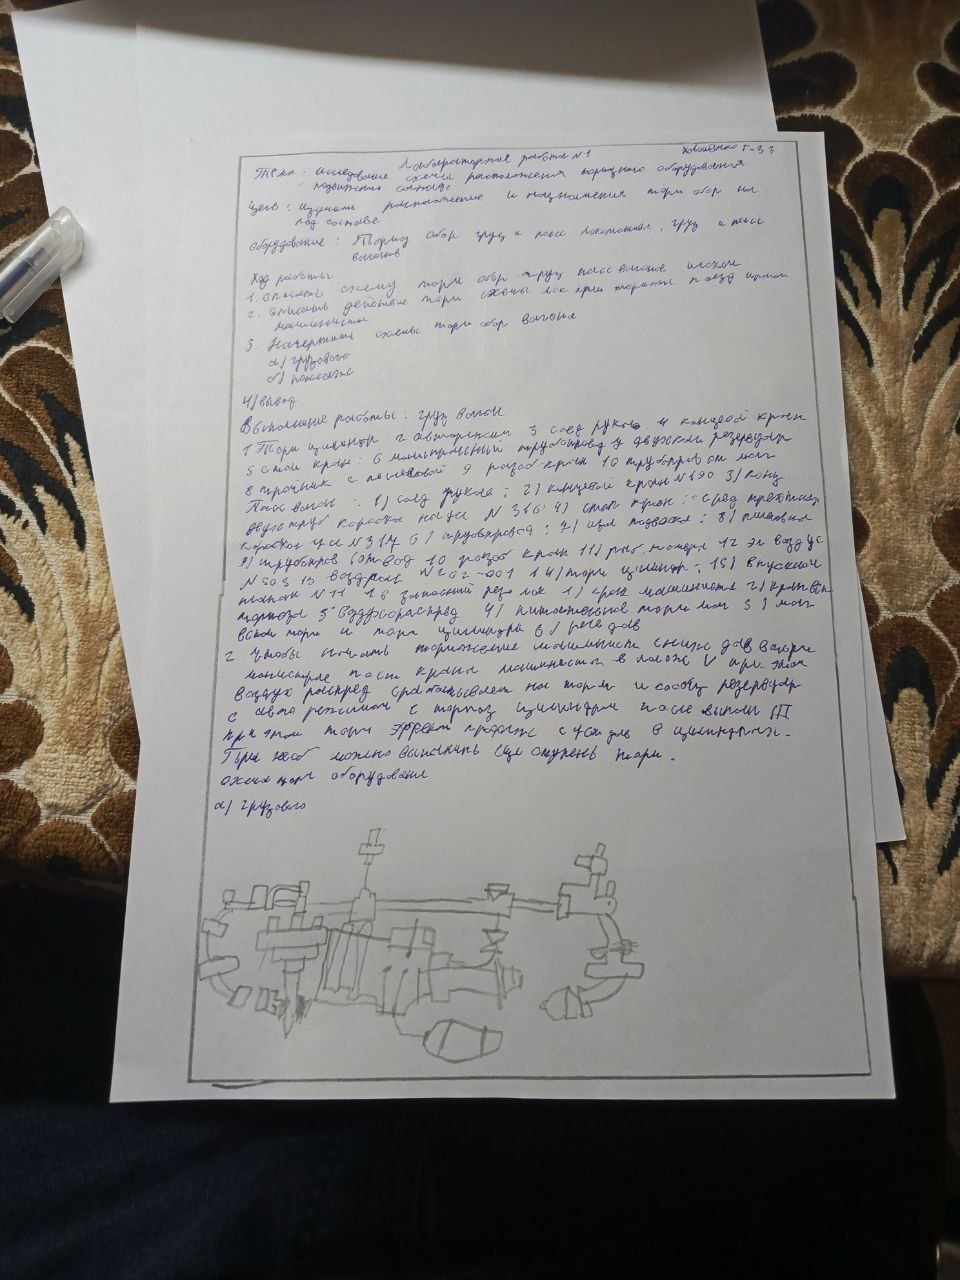 Лабораторная работа №1
Г-33
Тема: исследование схемы расположения тормозного оборудования
подвижного состава
Цель: изучить расположение и назначения торм обор на
под составе
Оборудование: Тормоз обор груз и пасс локомотива, груз и пасс
вагонов
Ход работы
1. Описать схему торм обор груз пасс вагонов
2. Описать действие торм схемы лок при торможе поезд
машиниста
3. Начертить схемы торм обор вагона
а) грузового
б) пассажа
4) вывод
Выполнение работы: груз вагон
1 Торм цилиндр 2 авторежим 3 соед рукав: 4 концевой кран
5 стоп кран: 6 магистральный трубопровод 7 двухкам резервуар
8 тройник с пылеловкой 9 разоб кран 10 трубопров от маг
Пасс вагон: 1) соед рукав; 2) концевой кран №190 3) конц
двухтруб коробка на ус № 316 4) стоп кран: сред трехтруб
коробка усл №317 6) трубопровод: 7) изол подвеска: 8) пылеловка
9) трубопров отвод 10 разоб кран 11) раб камера 12 эл возд ус
№305 13 воздрас №292-001 14) торм цилиндр: 15) выпускной
клапан №11 16 запасный рез лок 1) кран машиниста 2) кран всп
тормоза 3 воздухораспред 4) питательная торм маг 5) маг
вспом торм и торм цилиндры 6) реле дав
2 Чтобы начать торможение машинист сниж дав в торм
магистрале пост крана машиниста в полож V при этом
воздух распред срабатывает на торм и сообщ резервуар
с авто режимом с тормоз цилиндрм после выполн III
при этом торм эффект продолж с уст дав в цилиндрах.
При необ можно выполнить еще ступень торм.
схема торм оборудования
а) грузового